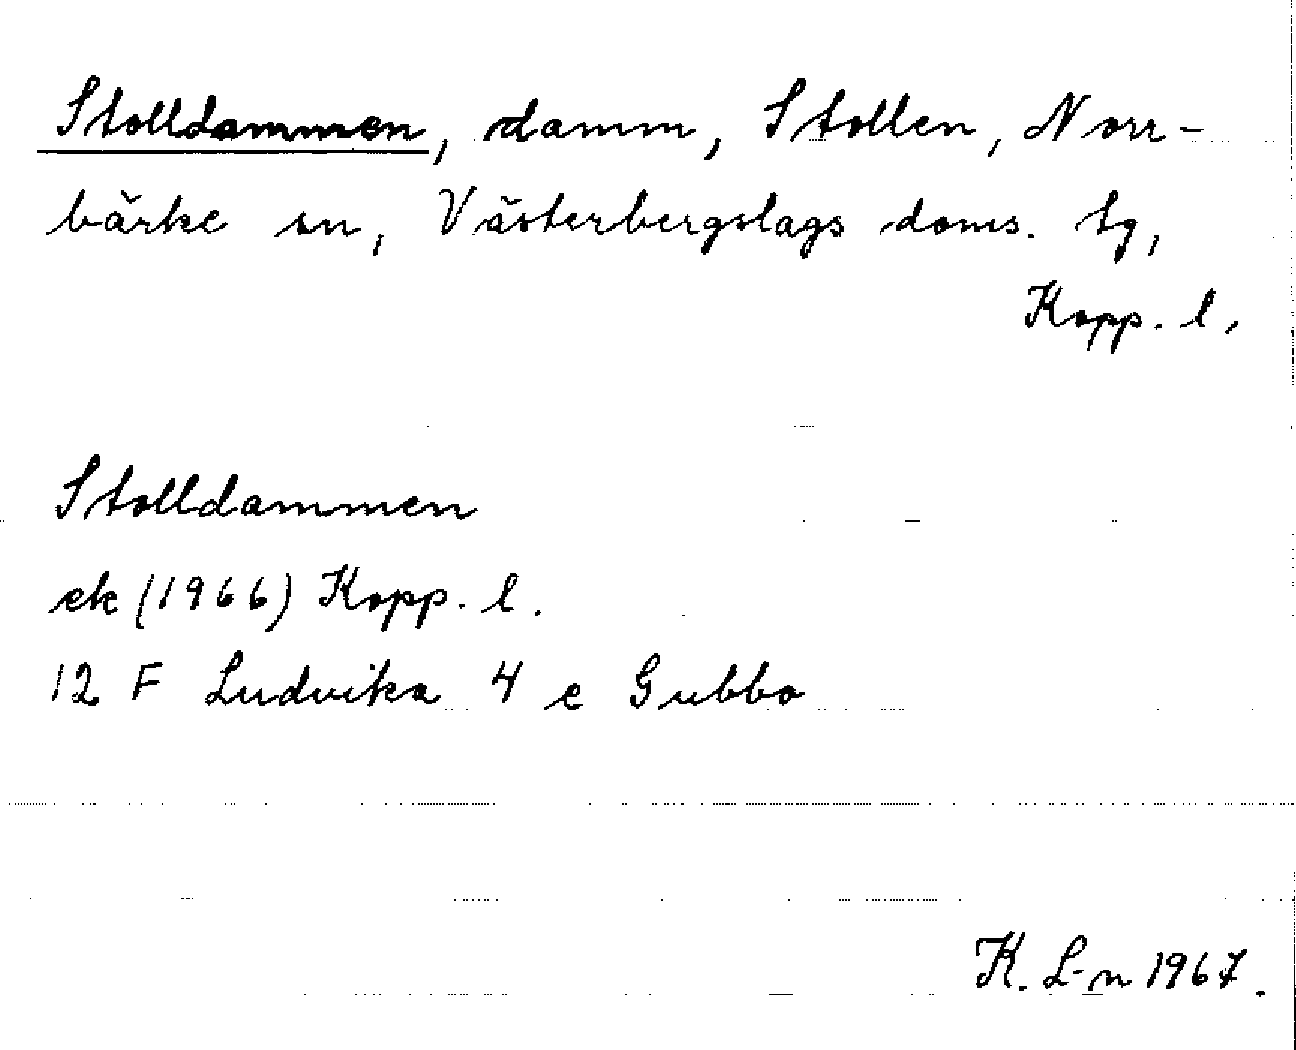 Stolldammen, damm, Stollen, Norr-
bärke sn, Västerbergslags doms. tg,
Kopp. l.
Stolldammen
ek (1966) Kopp. l.
12 F Ludvika 4 e Gubbo
K. L-n 1967.